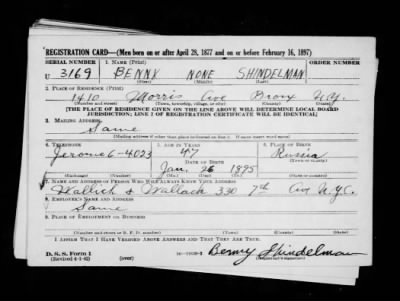 REGISTRATION CARD—(Men born on or after April 28, 1877 and on or before February 16, 1897)
SERIAL NUMBER 1. NAME (Print) ORDER NUMBER
U 3169 BENNY NONE SHINDELMAN
(First) (Middle) (Last)
2. PLACE OF RESIDENCE (Print)
1410 Morris Ave Bronx N.Y.
(Number and street) (Town, township, village, or city) (County) (State)
[THE PLACE OF RESIDENCE GIVEN ON THE LINE ABOVE WILL DETERMINE LOCAL BOARD
JURISDICTION; LINE 2 OF REGISTRATION CERTIFICATE WILL BE IDENTICAL]
3. MAILING ADDRESS
Same
[Mailing address if other than place indicated on line 2. If same insert word same]
4. TELEPHONE 5. AGE IN YEARS 6. PLACE OF BIRTH
Jerome 6-4023 47 Russia
DATE OF BIRTH
Jan. 26 1895
(Exchange) (Number) (Mo.) (Day) (Yr.) (State or country)
7. NAME AND ADDRESS OF PERSON WHO WILL ALWAYS KNOW YOUR ADDRESS
Wallach 330 7th Ave N.Y.C.
8. EMPLOYER'S NAME AND ADDRESS
Same
9. PLACE OF EMPLOYMENT OR BUSINESS
(Number and street or R. F. D. number) (Town) (County) (State)
I AFFIRM THAT I HAVE VERIFIED ABOVE ANSWERS AND THAT THEY ARE TRUE.
D. S. S. Form 1
(Revised 4-1-42) (over) Benny Shindelman